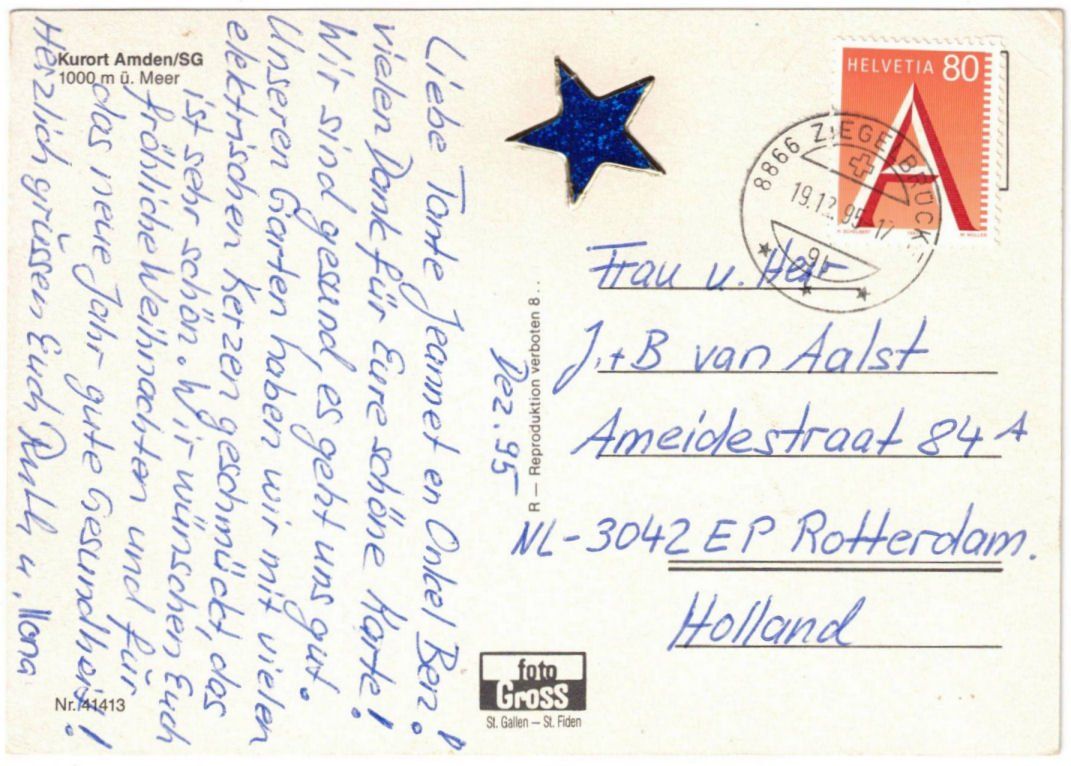 Kurort Amden/SG
1000 m ü. Meer
Liebe Tante Jeannet en Onkel Ben!
vielen Dank für Eure schöne Karte!
Wir sind gesund, es geht uns gut.
Unseren Garten haben wir mit vielen
elektrischen Kerzen geschmückt, das
ist sehr schön. Wir wünschen Euch
fröhliche Weihnachten und für
das neue Jahr gute Gesundheit!
Herzlich grüssen Euch Ruth u.
Nr. 41413
Dez. 95
R — Reproduktion verboten 8 . .
foto
Gross
St. Gallen – St. Fiden
HELVETIA 80
A
8866 ZIEGELBRÜCKE
19.12.95-17
Frau u. Herr
J. + B van Aalst
Ameidestraat 84 A
NL-3042 EP Rotterdam.
Holland